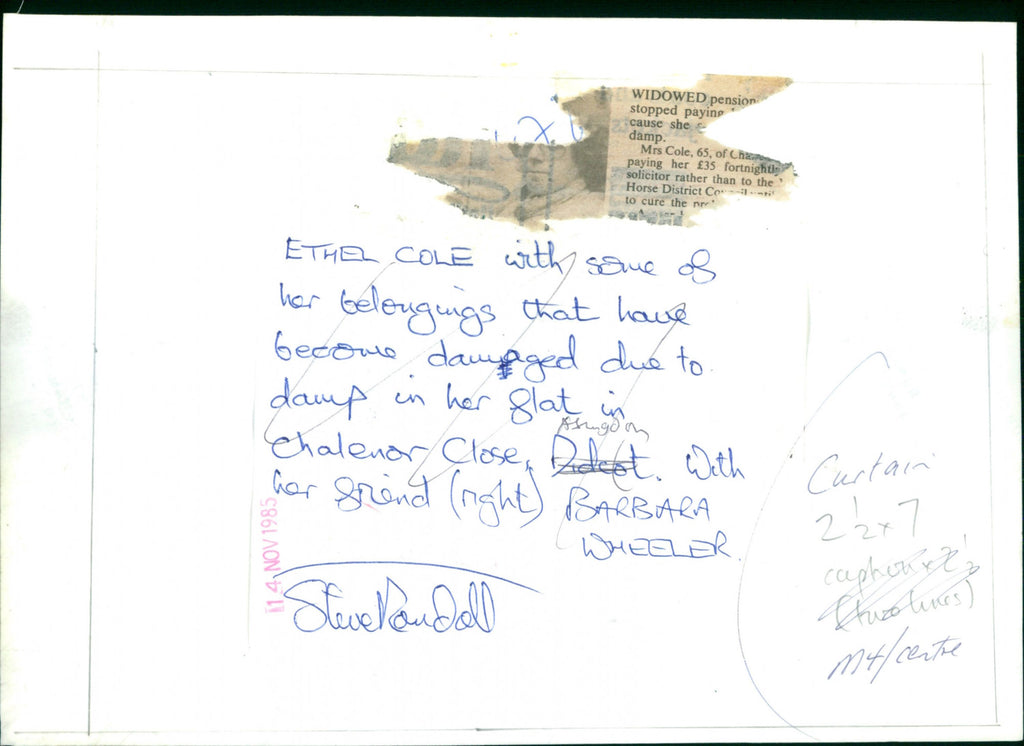 WIDOWED pension
stopped paying
cause she
damp.
Mrs Cole, 65, of Cha
paying her £35 fortnightly
solicitor rather than to the
Horse District Council until
to cure the pr
ETHEL COLE with some of
her belongings that have
become damaged due to
damp in her flat in
Abingdon
Chalenor Close, Didcot. With
her friend (right) BARBARA
WHEELER.
14 NOV 1985
Steve Randall
Curtain
2 1/2 x 7
caption x 2
(two lines)
M4/centre